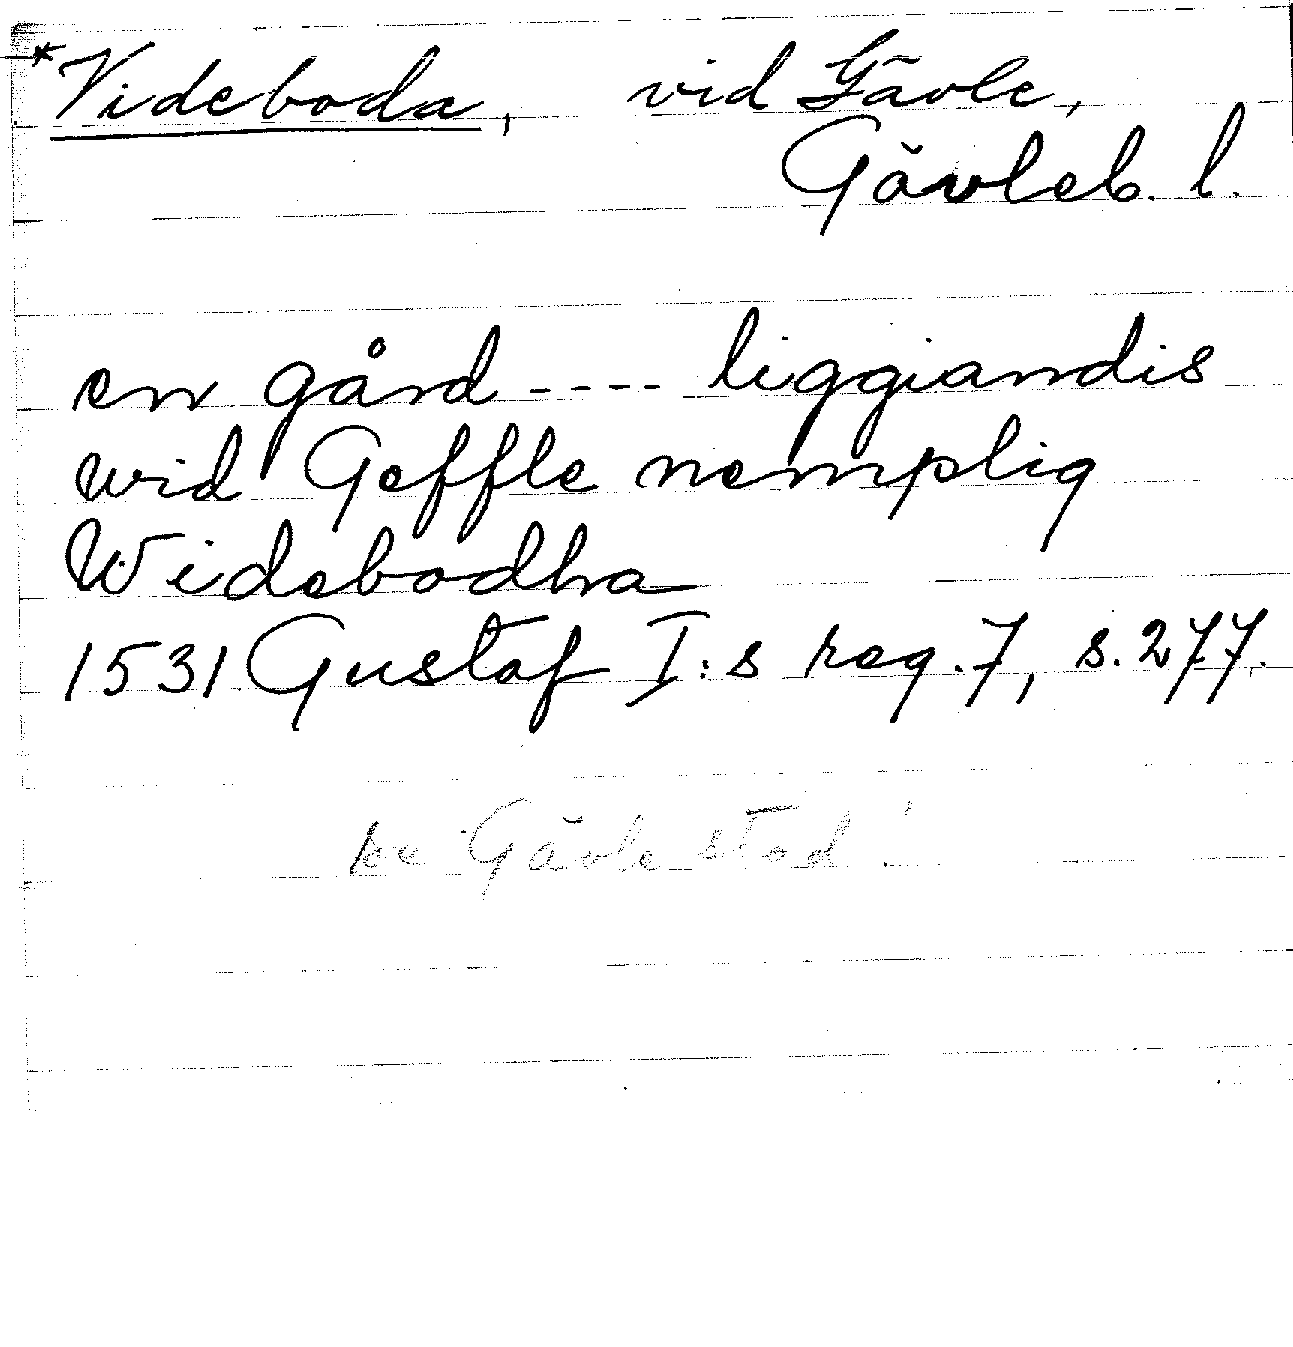 *Videboda, vid Gävle,
Gävleb. l.
en gård ---- liggiandis
wid Geffle nemplig
Widebodha
1531 Gustaf I:s reg. 7, s. 277.
Gävle stad!